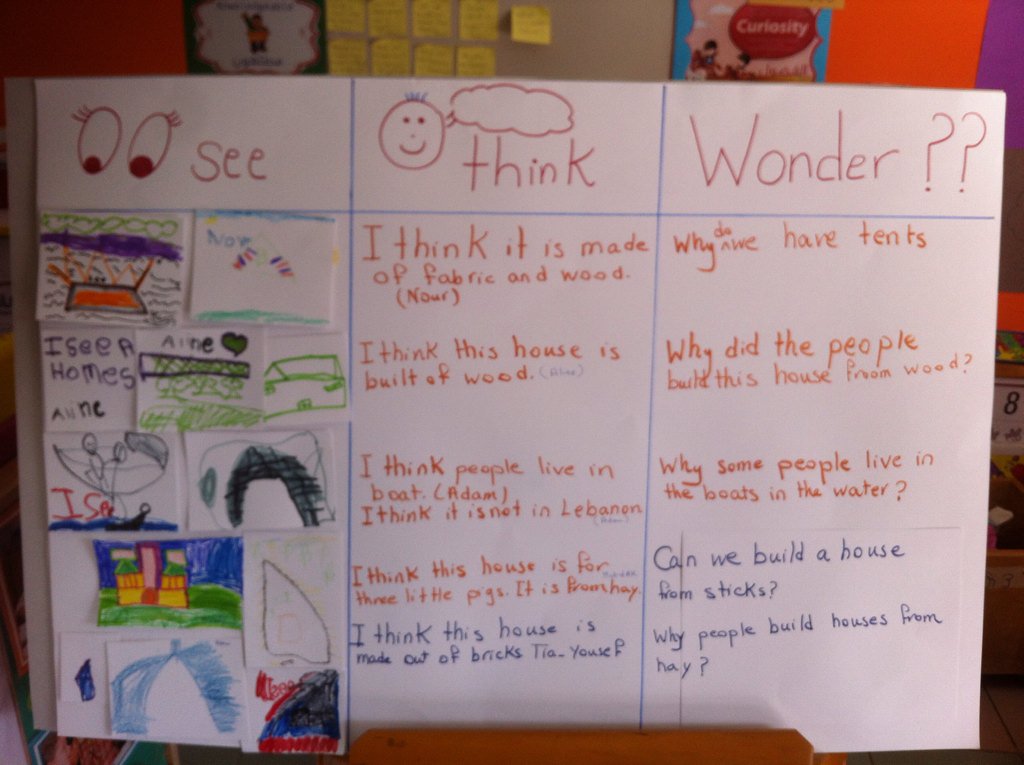 Curiosity
see
think
Wonder ??
I think it is made
of fabric and wood.
(Nour)
Why do we have tents
Nour
I see A
Homes
Aline
Aline
I think this house is
built of wood. (Aline)
Why did the people
build this house froom wood?
I See
I think people live in
boat. (Adam)
I think it is not in Lebanon
Why some people live in
the boats in the water?
I think this house is for
three little pigs. It is from hay.
I think this house is
made out of bricks Tia- Yousef
Can we build a house
from sticks?
Why people build houses from
hay?
I see
8